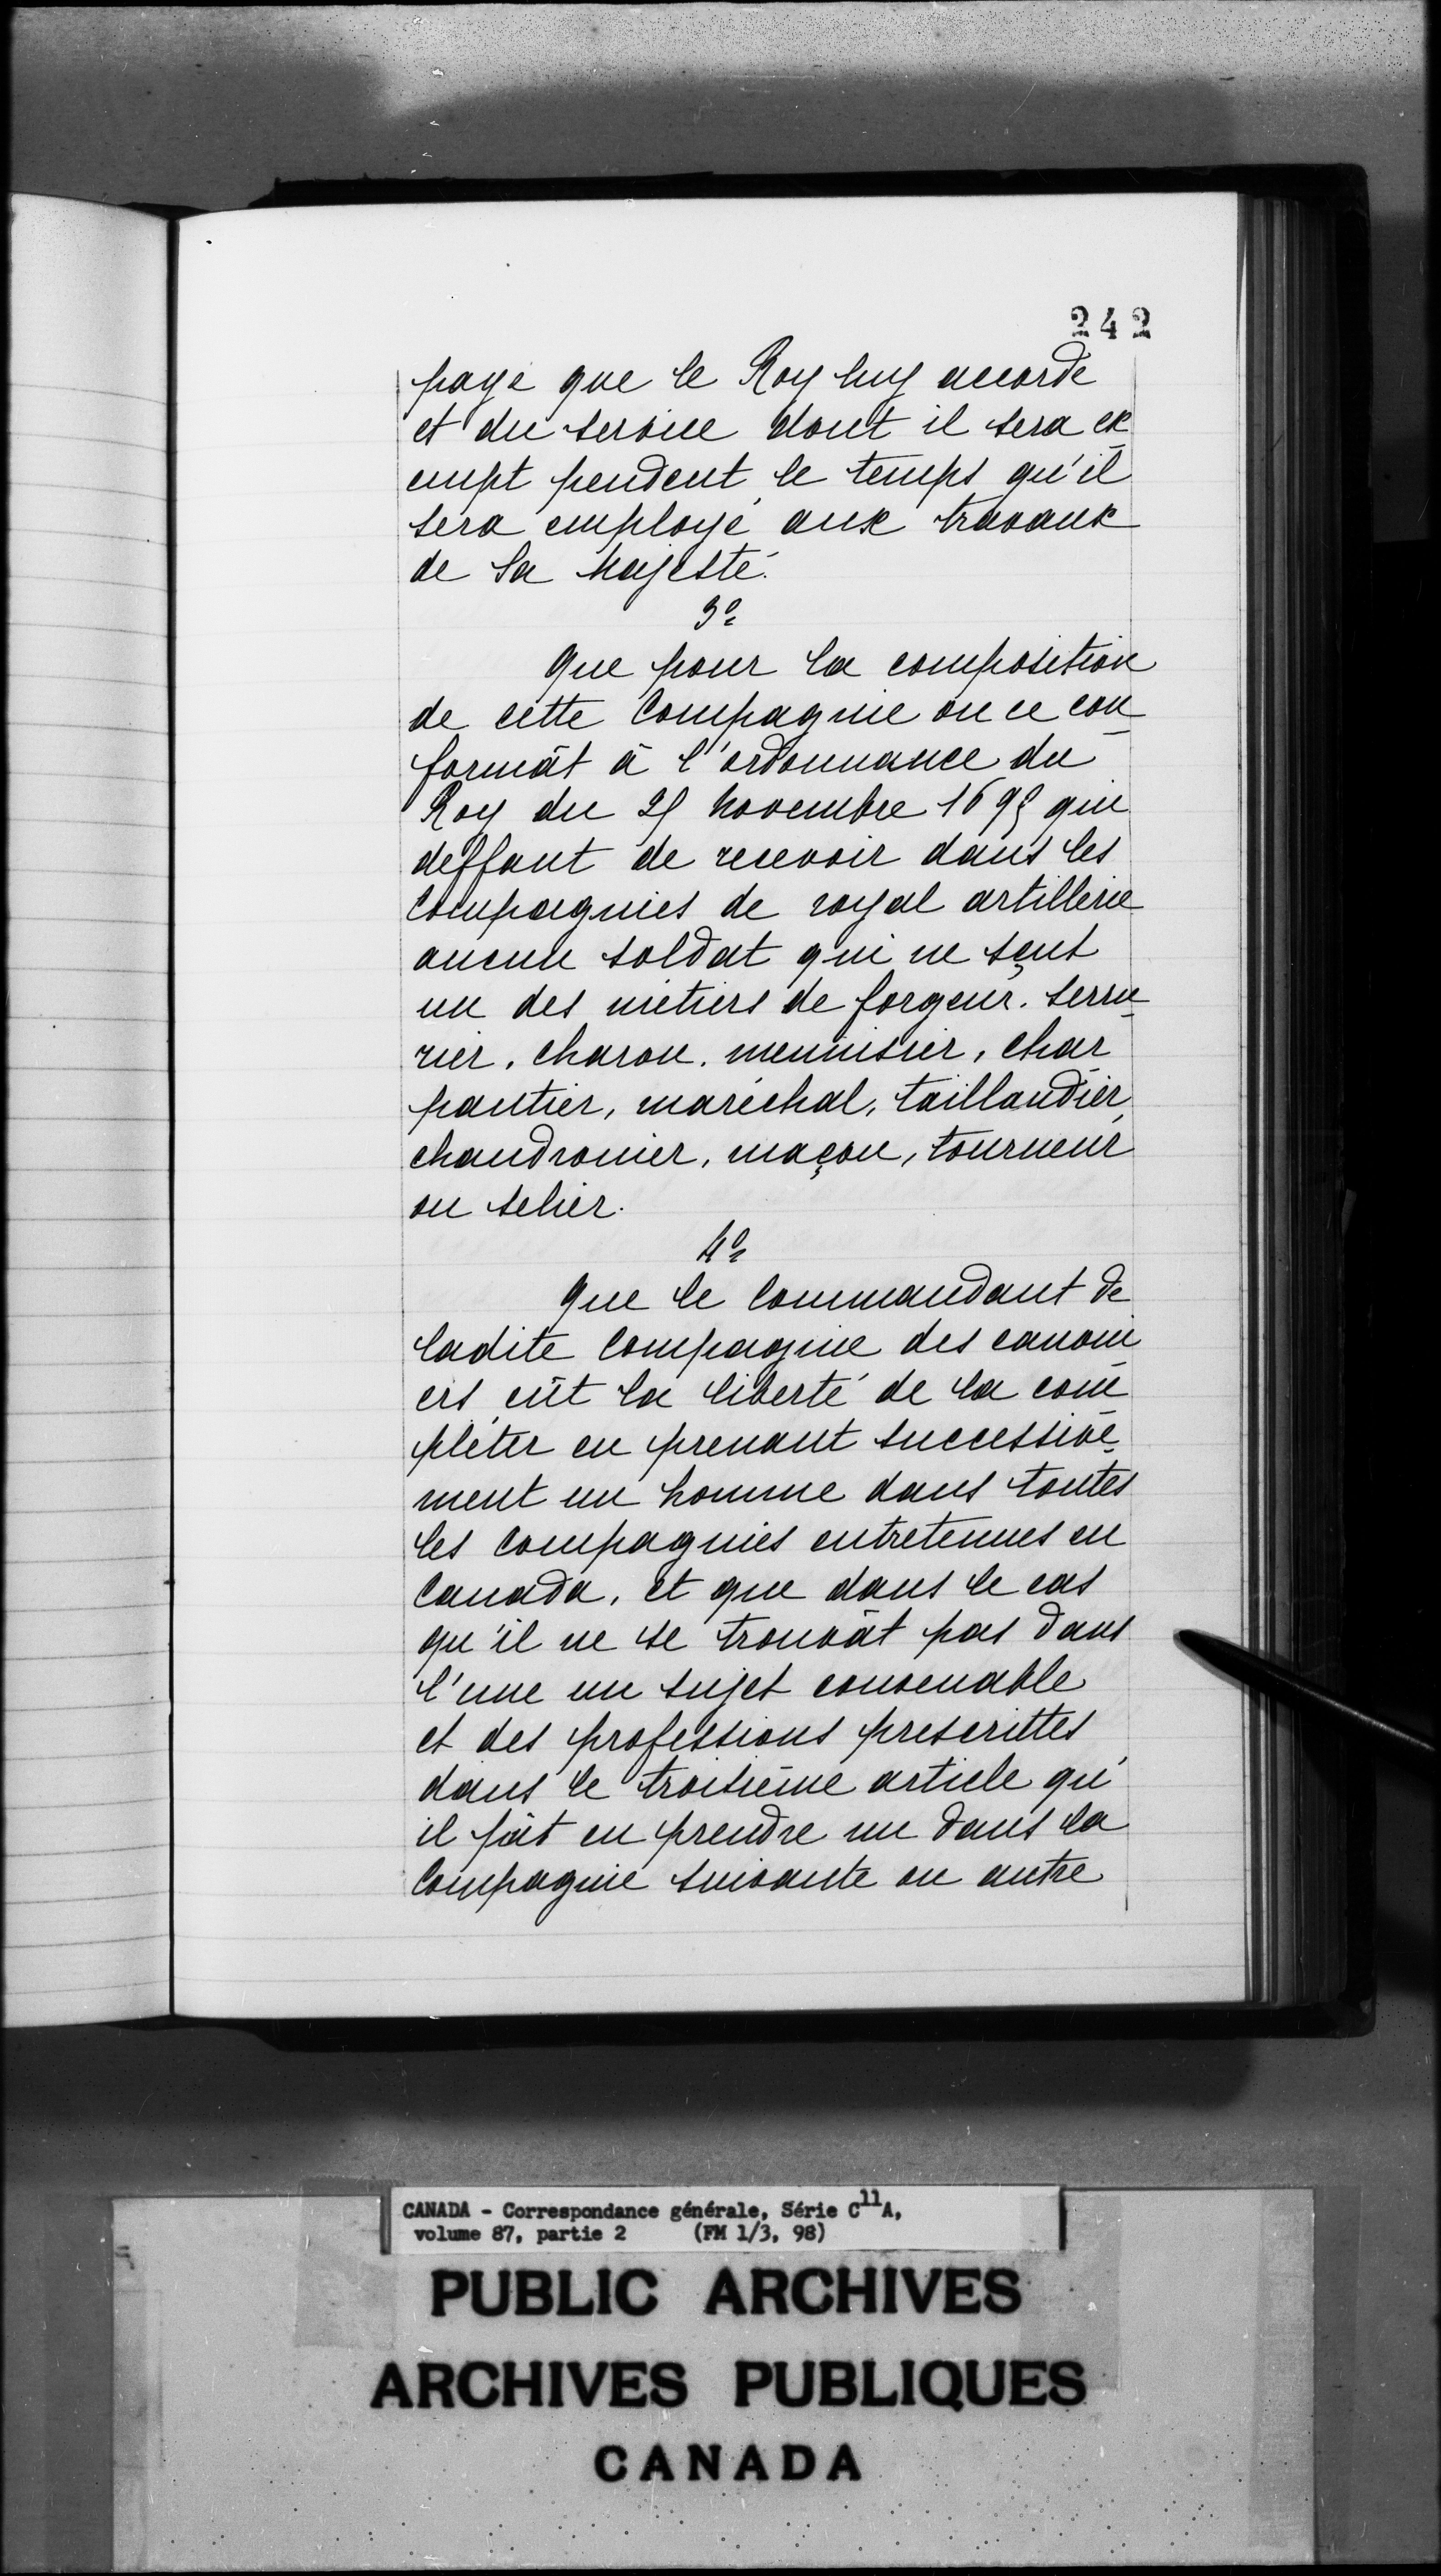 242
paye que le Roy luy accorde
et du service dont il sera ex
empt pendent le temps qu'il
sera employé aux travaux
de Sa Majesté.
3º
Que pour la composition
de cette Compagnie on ce con
formât à l'ordonnance du
Roy du novembre qui
deffant de recevoir dans les
Compagnies de royal artillerie
aucun soldat qui ne sçut
un des métiers de forgeur. serru
rier, charon, mennisier, char
pantier, maréchal, taillandier,
chaudronier, maçon, tourneur
ou selier.
4º
Que le Commandant de
ladite Compagnie des canoni
ers eût la liberté de la com
pléter en prenant successive
ment un homme dans toutes
les Compagnies entretenues en
Canada, et que dans le cas
qu'il ne se trouvât pas dans
l'une un sujet convenable
et des professions prescrittes
dans le troisième article qu'
il pût en prendre un dans la
Compagnie suivante ou autre
CANADA - Correspondance générale, Série C11A,
volume 87, partie 2 (FM 1/3, 98)
PUBLIC ARCHIVES
ARCHIVES PUBLIQUES
CANADA